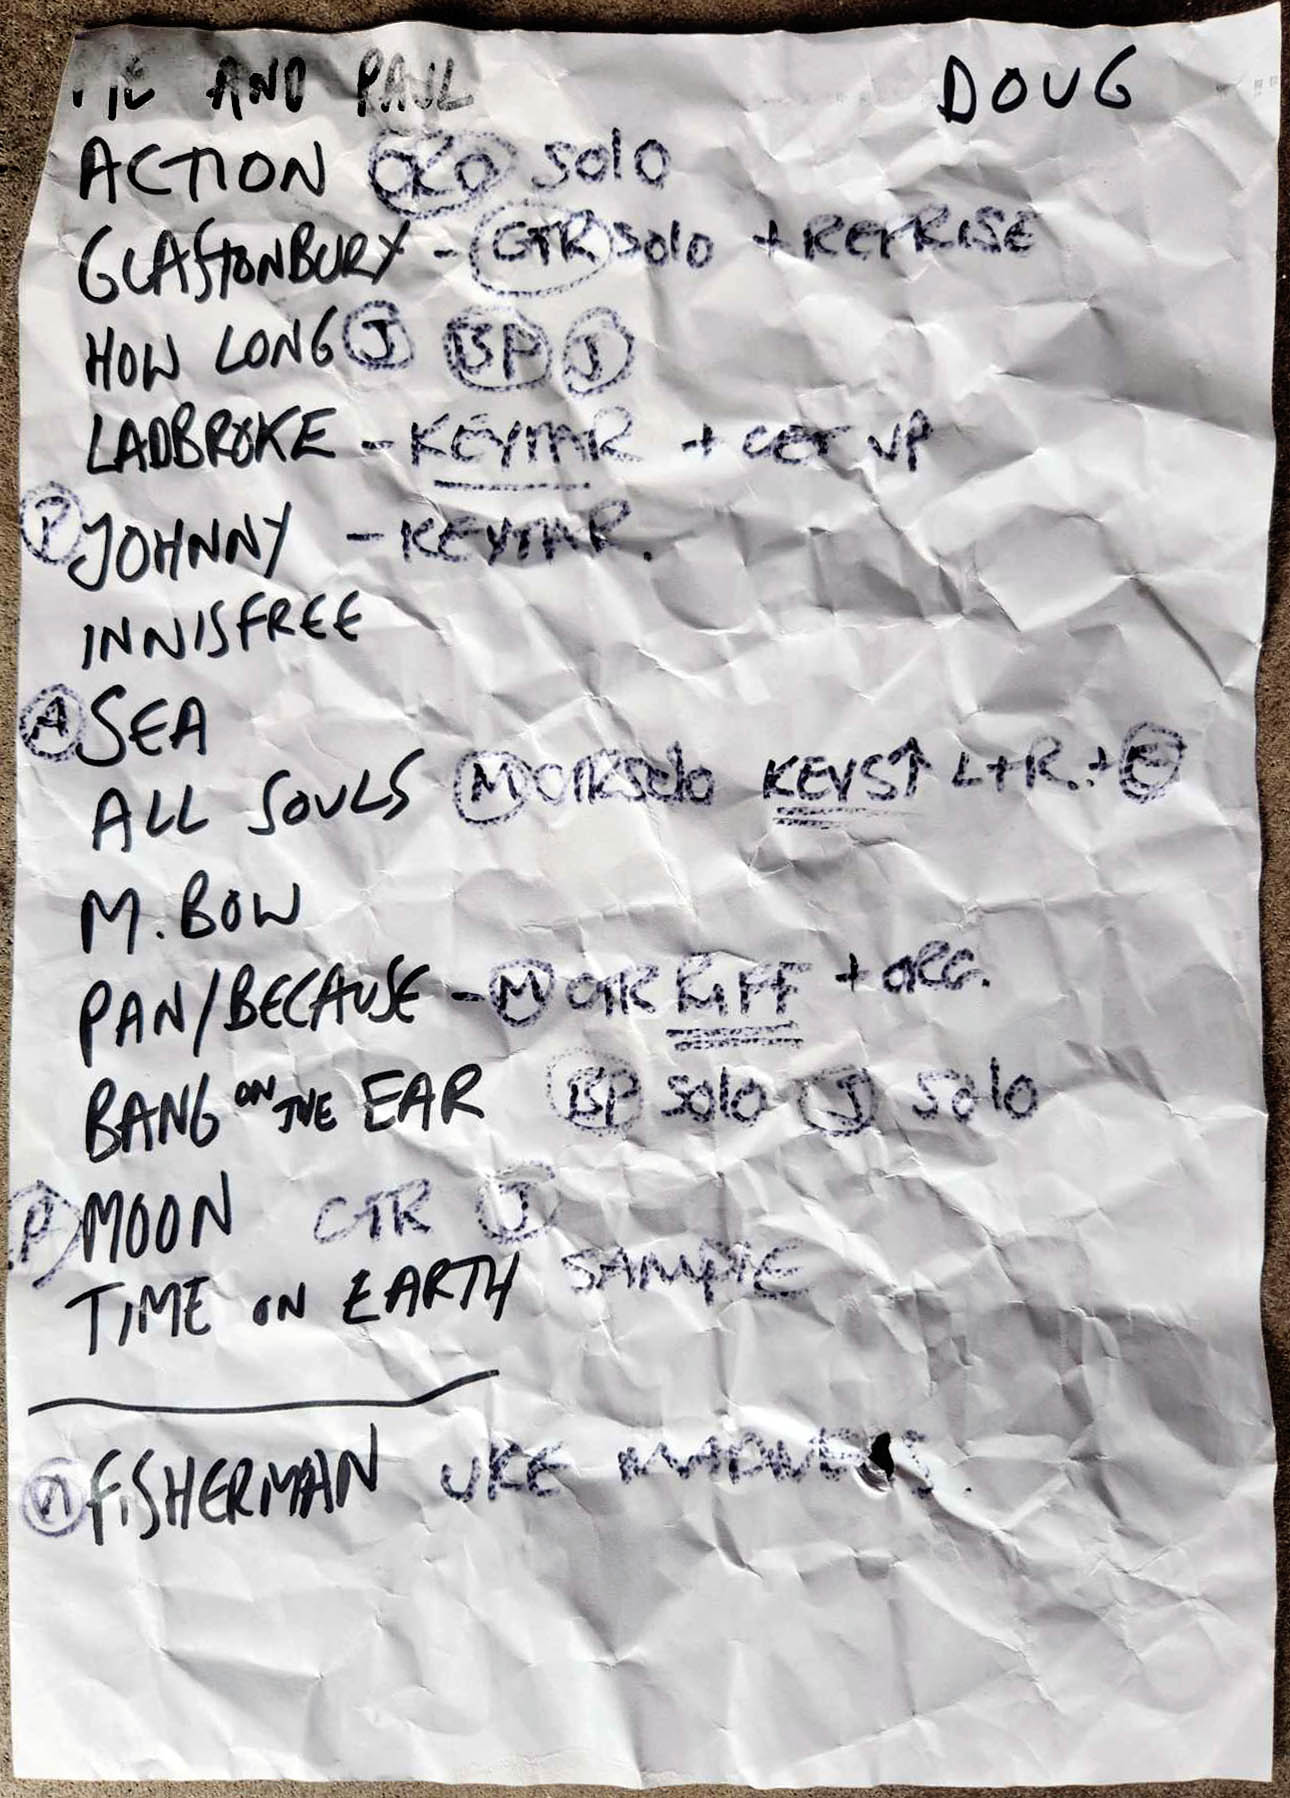 ME AND PAUL DOUG
ACTION ORG SOLO
GLASTONBURY - GTR SOLO + REPRISE
HOW LONG J BP J
LADBROKE - KEYTAR + GET UP
P JOHNNY - KEYTAR.
INNISFREE
A SEA
ALL SOULS M GTR SOLO KEYS↑ L+R. +
M. BOW
PAN/BECAUSE - M GTR RIFF + ORG.
BANG ON THE EAR BP SOLO J SOLO
P MOON GTR J
TIME ON EARTH SAMPLE
FISHERMAN UKE MADNESS.